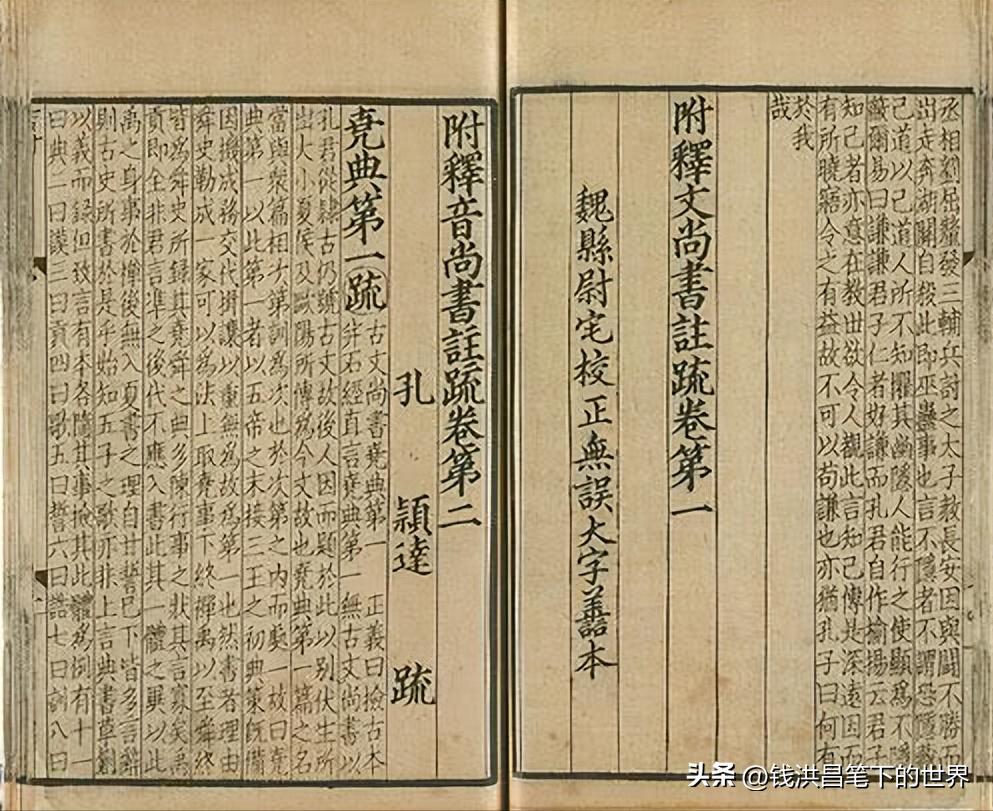 丞相劉屈氂發三輔兵討之太子敎長安因與鬭不勝
出走奔湖關自殺此即巫蠱事也言不隱者不謂恐隱藏
己道以己道人所不知懼其幽隱人能行之使顯爲不隱
蔽爾易曰謙謙君子仁者好謙而孔君自作揄揚云君子
知己者亦意在教世欲令人觀此言知己傳是深遠因
有所曉寤令之有益故不可以苟謙也亦猶孔子曰何有
於我
哉
附釋文尚書註疏卷第一
魏縣尉宅校正無誤大字善本
附釋音尚書註疏卷第二
孔 穎達 疏
堯典第一疏 古文尚書堯典第一 正義曰檢古本
并石經直言堯典第一無古文尚書以
孔君從隸古仍號古文故後人因而題於此以別伏生所
出大小夏侯及歐陽所傳爲今文故也堯典第一篇之名
當與衆篇相次第訓爲次也於次第之內而處一故曰堯
典第一以此第一者以五帝之末接三王之初典策既備
因機成務交代揖讓以垂無爲故爲第一也然書者理由
舜史勒成一家可以爲法上取堯事下終禪禹以至舜終
皆爲舜史所錄其堯舜之典多陳行事之狀其言寡矣禹
貢即全非君言準之後代不應入書此其一體之異以此
禹之身事於禪後無入夏書之理自甘誓已下皆多言辭
則古史所書於是乎始知五子之歌亦非上言典書草創
以義而錄但致言有本各隨其事檢其此體爲例有十一
曰典二曰謨三曰貢四曰歌五曰誓六曰誥七曰訓八曰
头条 @钱洪昌笔下的世界